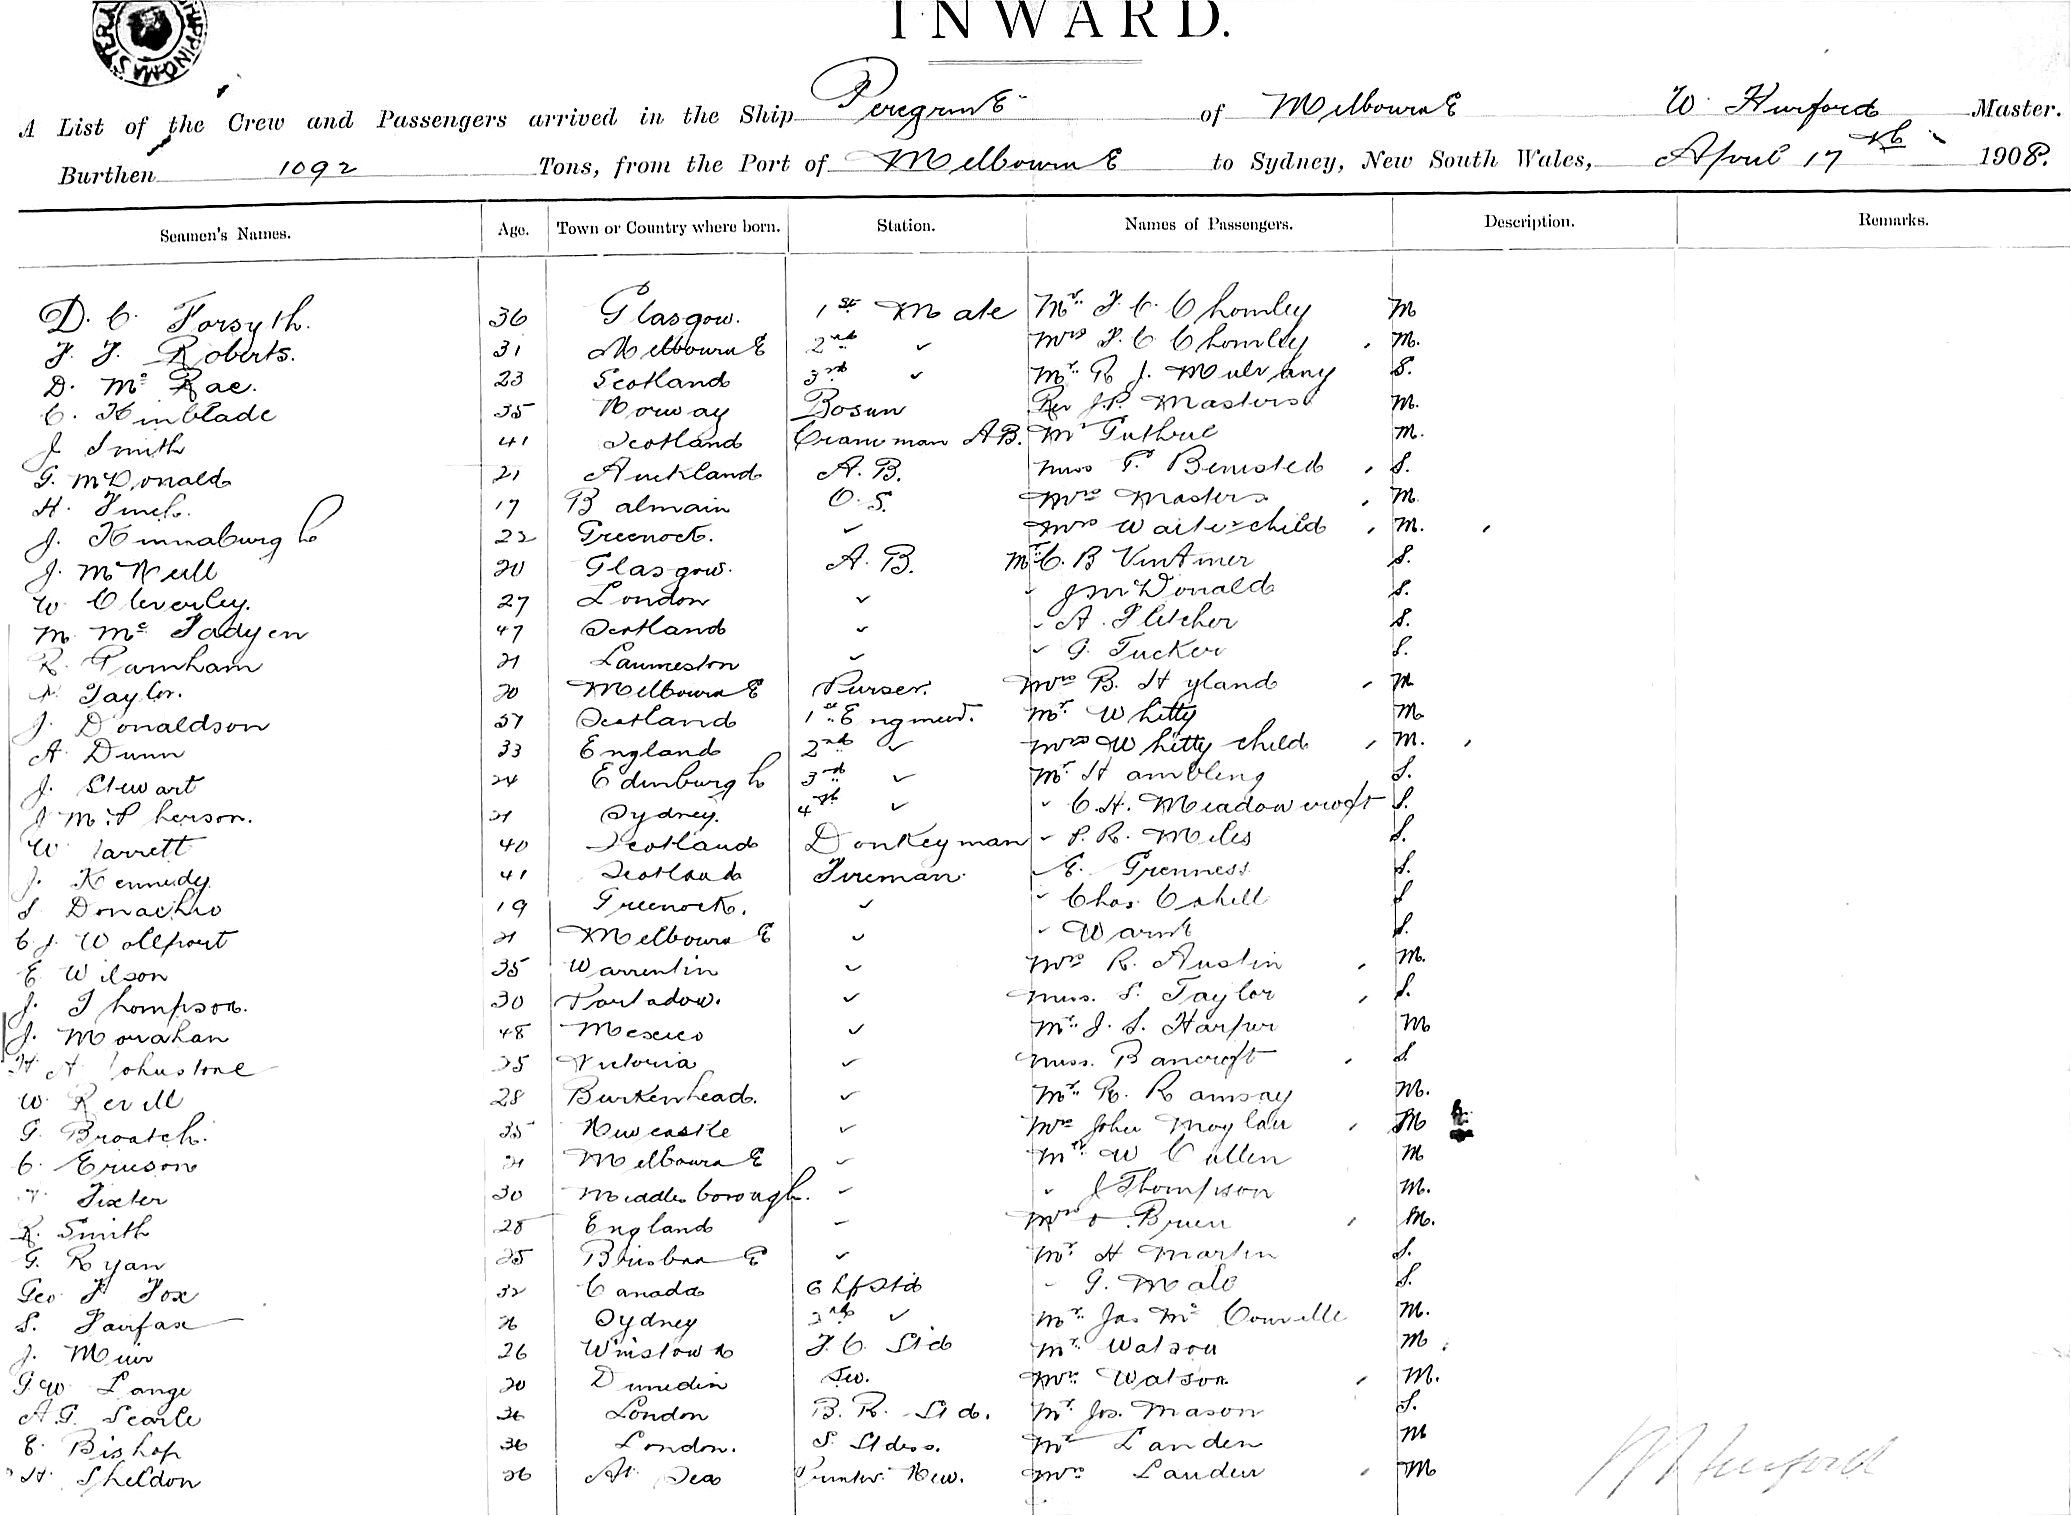 SHIPPING MASTER
INWARD.
A List of the Crew and Passengers arrived in the Ship Peregrine of Melbourne W. Hurford Master.
Burthen 1092 Tons, from the Port of Melbourne to Sydney, New South Wales, April 17th 1908.
Seamen's Names. Age. Town or Country where born. Station. Names of Passengers. Description. Remarks.
D. C. Forsyth. 36 Glasgow. 1st Mate Mr. F. C. Chomley M
F. F. Roberts. 31 Melbourne 2nd ✓ Mrs F. C. Chomley , M.
D. Mc Rae. 23 Scotland 3rd ✓ Mr. R. J. Mulvany S.
C. Kinblade 35 Norway Bosun Rev J.P. Masters M.
J Smith 41 Scotland Craneman A.B. Mr Guthrie M.
G. McDonald 21 Auckland A. B. Miss F. Bensted , S.
H. Finch. 17 Balmain O. S. Mrs Masters , M.
J. Kinnaburgh 22 Greenock. ✓ Mrs Waite & child , M. ,
J. McNeill 20 Glasgow. A. B. Mr. C. B Vintiner S.
W. Cleverley. 27 London ✓ " J McDonald S.
M. Mc Fadyen 47 Scotland ✓ " A. Fletcher S.
R. Garnham 21 Launceston ✓ " G. Tucker S.
Taylor. 20 Melbourne Purser. Mrs B. Hyland , M
J. Donaldson 57 Scotland 1st Engineer. Mr. Whitty M
A. Dunn 33 England 2nd ✓ Mrs Whitty child , M. ,
J. Stewart 24 Edinburgh 3rd ✓ Mr. Hambling S.
J McPherson. 21 Sydney. 4th ✓ " C. H. Meadowcroft S.
W Jarrett 40 Scotland Donkeyman " P. R. Miles S.
J. Kennedy 41 Scotland Fireman. " E. Grenness S.
S Donachie 19 Greenock. ✓ " Chas. Cahill S
C J. Wollfort 21 Melbourne ✓ " Warne S.
E Wilson 35 Warrentin ✓ Mrs R. Austin , M.
J. Thompson. 30 Portadow. ✓ Miss. S. Taylor , S.
J. Morahan 48 Mexico ✓ Mr. J. S. Harper M
H A Johnstone 25 Victoria ✓ Miss. Bancroft , S
W. Revill 28 Burkenhead. ✓ Mr. R. Ramsay M.
G. Broatch. 35 Newcastle ✓ Mrs John Moylan , M
C. Ericson 21 Melbourne ✓ Mr. W Cullen M
Fixter 30 Middlesborough. ✓ " J Thompson M.
R. Smith 28 England ✓ Mrs O. Brien , M.
G. Ryan 25 Brisbane ✓ Mr. H Martin S.
Geo F Fox 32 Canada Chf Std " G. Male S.
S. Fairfax 26 Sydney 2nd ✓ Mr. Jas Mc Conville M.
J. Muir 26 Winstown F. C. Std Mr. Watson M
G.W Lange 20 Dunedin Sec. Mrs. Watson , M.
A. G. Searle 36 London B. R. Std. Mr. Jos. Mason S.
E. Bishop 36 London. S. Stdess. Mr Landen M
H. Sheldon 26 At Sea Printer New. Mrs Landen , M
W Hurford